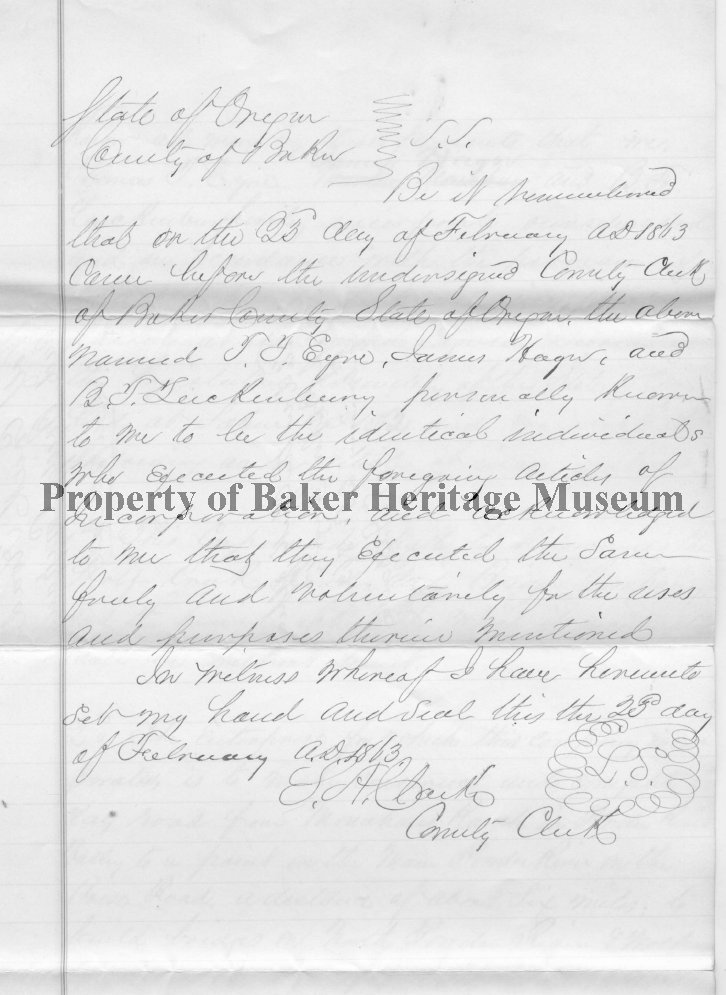 State of Oregon
County of Baker S.S.
Be it remembered
that on the 23d day of February A.D. 1863
came before the undersigned County Clerk
of Baker County State of Oregon, the above
named T. T. Eyre, James Hager, and
B. T. Luckenberry personally known
to me to be the identical individuals
who executed the foregoing articles of
Property of Baker Heritage Museum
incorporation, and acknowledged
to me that they Executed the Same
freely and voluntarily for the uses
and purposes therein mentioned
In witness whereof I have hereunto
set my hand and seal this the 23d day
of February A.D. 1863.
L.S.
S. A. Clark
County Clerk